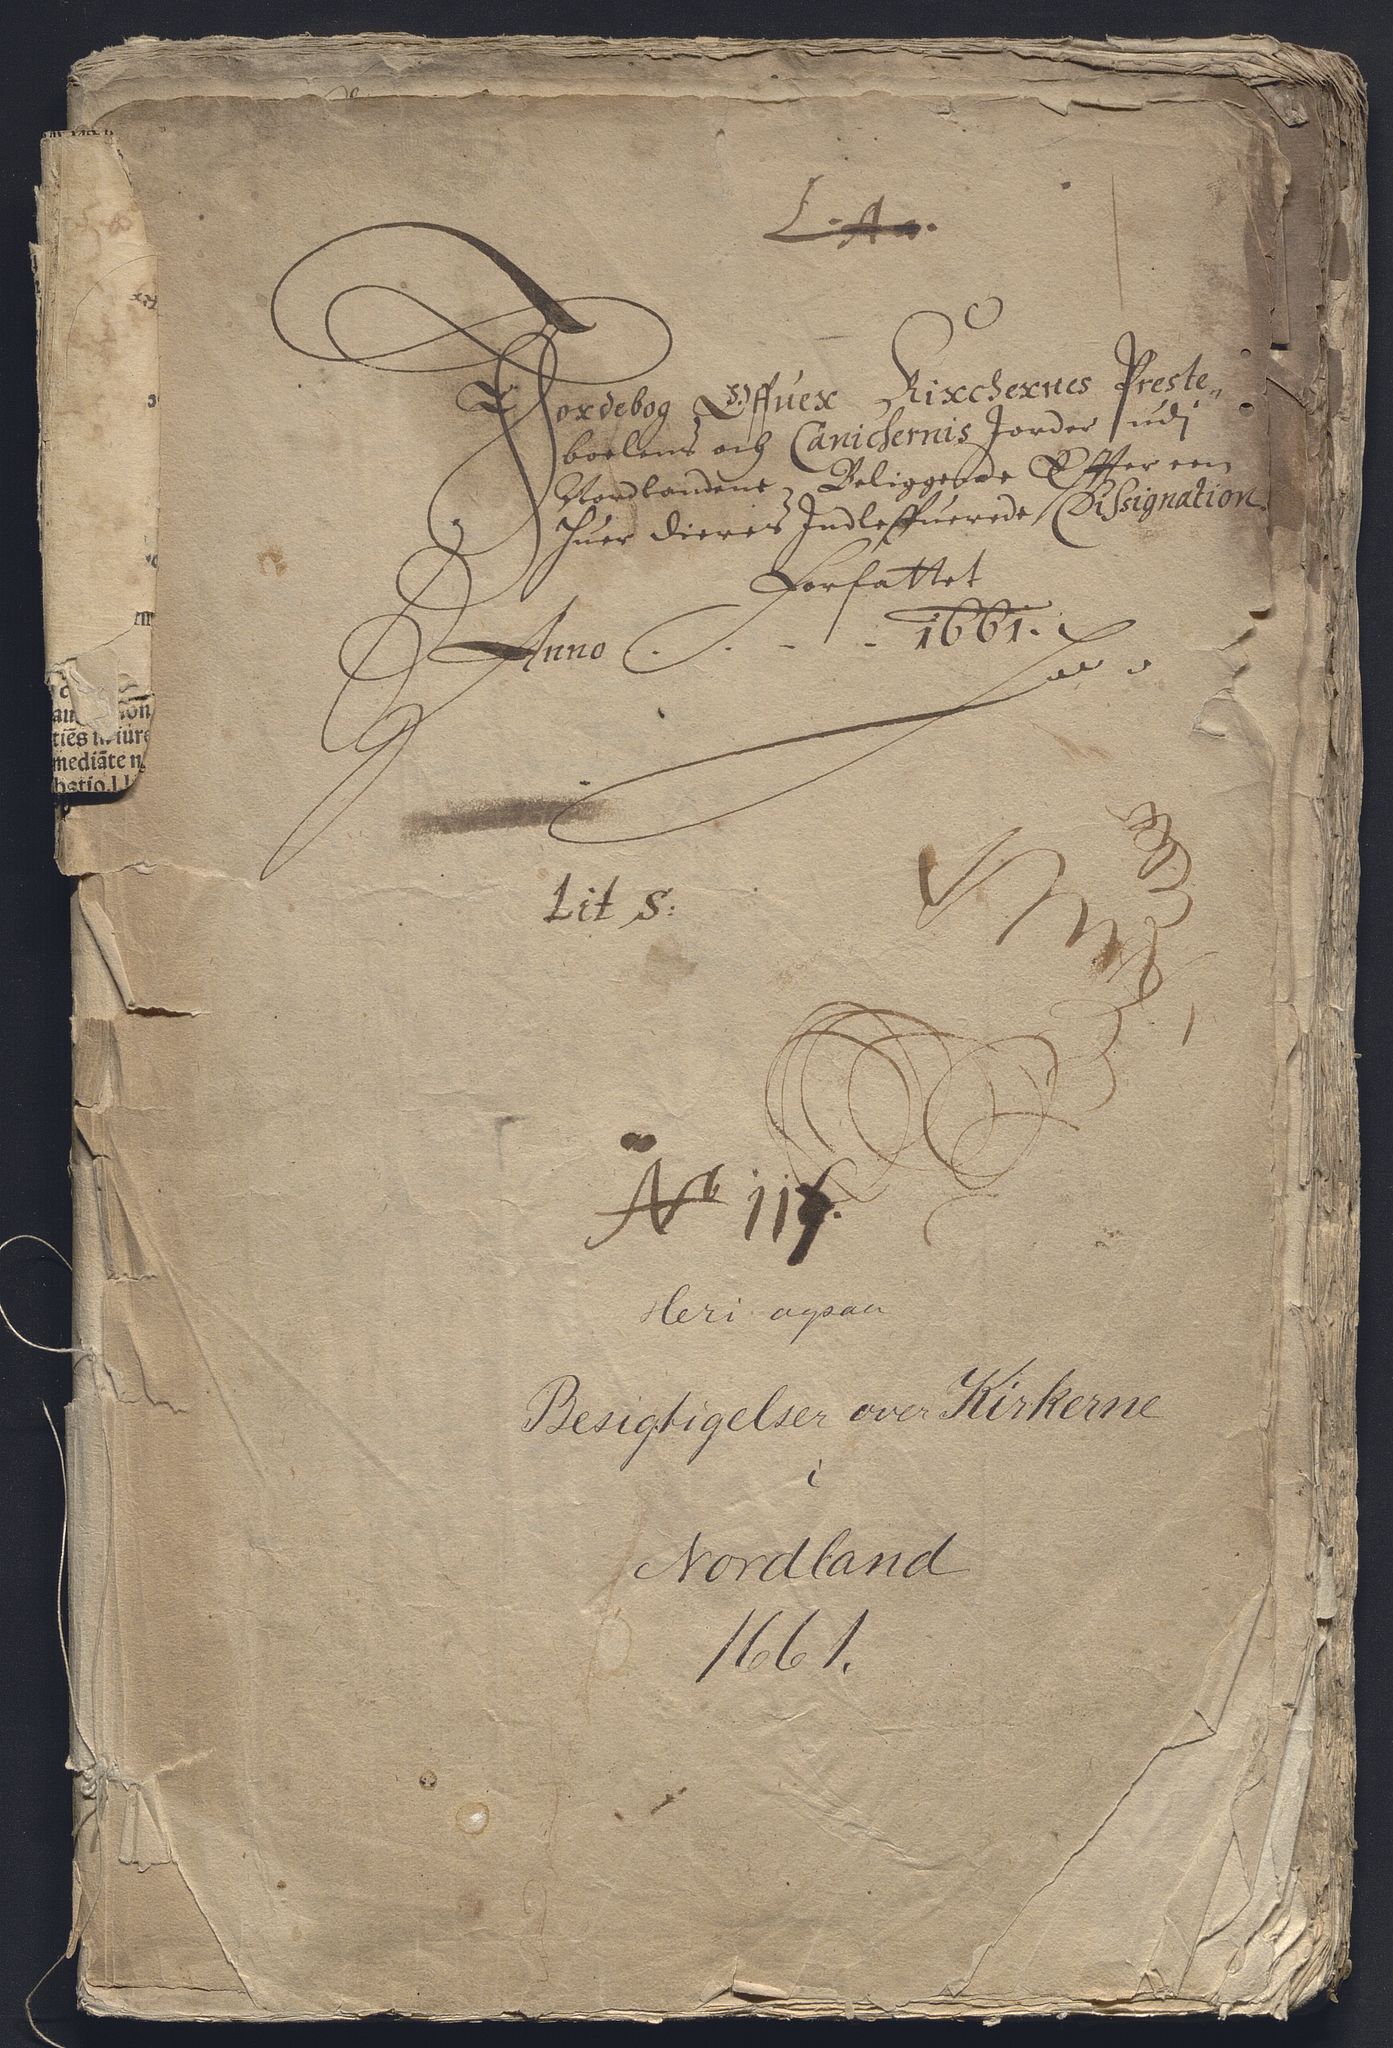 L. A a.
Jordebog Offuer Kirchernes Preste„
boelens och Canichernis Jorder udi
Nordlandene Beliggende Effter een
huer dieris Indleffuerede Dissignation.
Forfattet
Anno . . - - 1661.
Lit S:
No 117.
Heri ogsaa
Besigtigelser over Kirkerne
i
Nordland
1661.
tiēs in iure
mediāte n